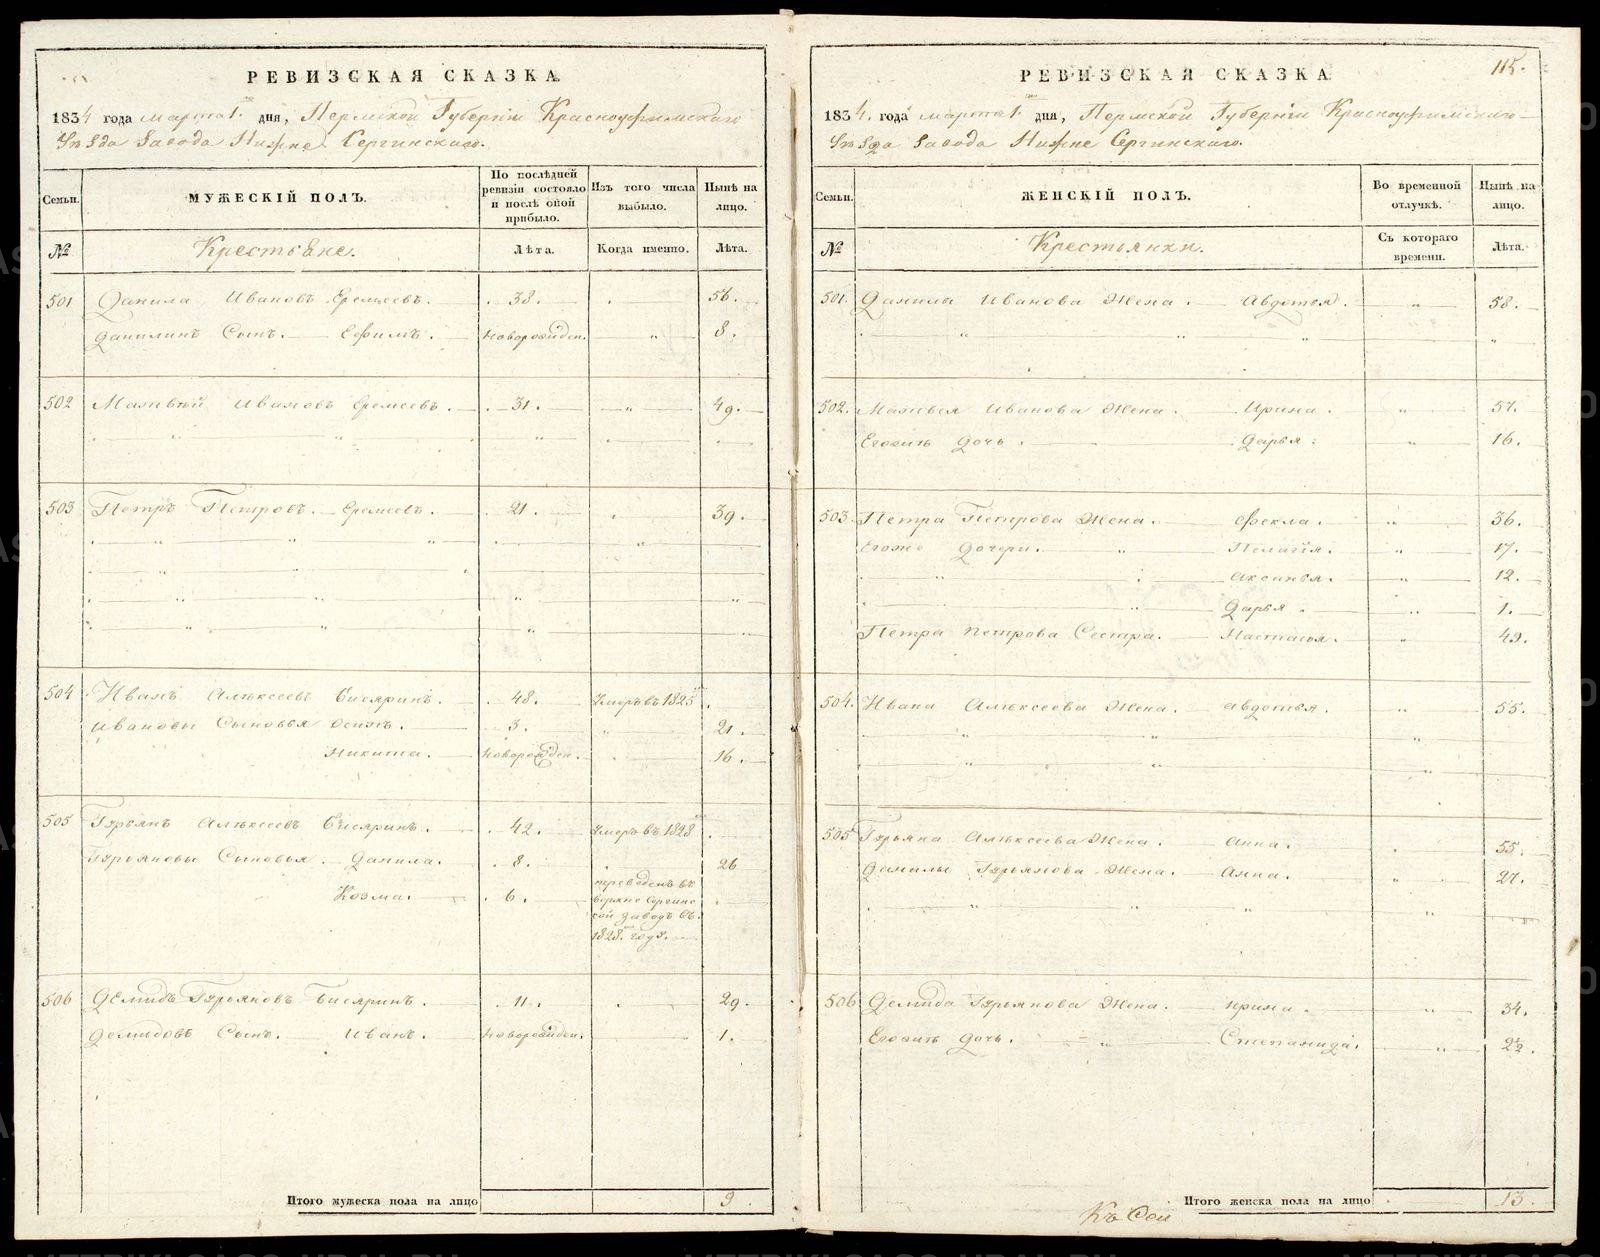 РЕВИЗСКАЯ СКАЗКА.
1834 года марта 1. дня, Пермской Губерніи Красноуфимскаго
Уѣзда Завода Нижне Сергинскаго.
Семьи.
МУЖЕСКІЙ ПОЛЪ.
По послѣдней ревизіи состояло и послѣ оной прибыло.
Изъ того числа выбыло.
Нынѣ на лицо.
№
Крестьяне.
Лѣта.
Когда именно.
Лѣта.
501 Данила Ивановъ Еремеевъ. 38. 56.
Данилинъ Сынъ. Ефимъ. новорожден. 8.
502 Матвѣй Ивановъ Еремеевъ. 31. 49.
503 Петръ Петровъ. Еремеевъ. 21. 39.
504 Иванъ Алѣксеевъ Бисяринъ. 48. Умеръ въ 1825
Ивановы Сыновья Осипъ. 3. 21.
Никита. новорожден. 16.
505 Гурьянъ Алѣксеевъ Бисяринъ. 42. Умеръ въ 1828
Гурьяновы Сыновья. Данила. 8. 26
Козма. 6. переведенъ въ
верхне Сергинс
кой заводъ въ
1828. году.
506 Демидъ Гурьяновъ Бисяринъ. 11. 29.
Демидовъ Сынъ. Иванъ. новорожден. 1.
Итого мужеска пола на лицо 9.
115.
РЕВИЗСКАЯ СКАЗКА
1834. года марта 1. дня, Пермской Губерніи Красноуфимскаго
Уѣзда Завода Нижне Сергинскаго.
Семьи.
ЖЕНСКІЙ ПОЛЪ.
Во временной отлучкѣ.
Нынѣ на лицо.
№
Крестьянки.
Съ котораго времени.
Лѣта.
501. Данила Иванова Жена. Авдотья. 58.
502. Матвея Иванова Жена. Ирина. 57.
Егожъ дочь. Дарья. 16.
503. Петра Петрова Жена. Фекла. 36.
Егоже дочери. Пелагія. 17.
Аксинья. 12.
Дарья. 1.
Петра Петрова Сестра. Настасья. 49.
504. Ивана Алѣксеева Жена. Авдотья. 55.
505 Гурьяна Алѣксеева Жена. Анна. 55.
Данилы Гурьянова Жена. Анна. 27.
506 Демида Гурьянова Жена. Ирина. 34.
Егожъ дочь. Степанида. 2½.
Итого женска пола на лицо 13.
Къ Сей